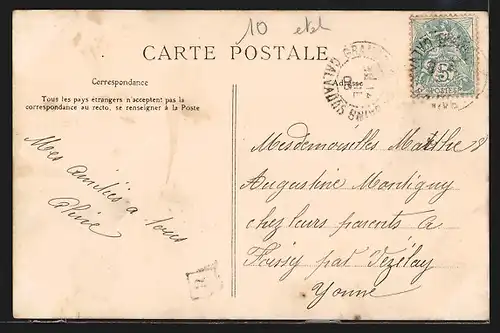 10 etel
CARTE POSTALE
Correspondance
Adresse
Tous les pays étrangers n'acceptent pas la
correspondance au recto, se renseigner à la Poste
CALVADOS
5c
POSTES
Mes amitiés a tous
Mesdemoiselles Marthe &
Augustine Montigny
chez leurs parents a
Foissy par Vézelay
Yonne